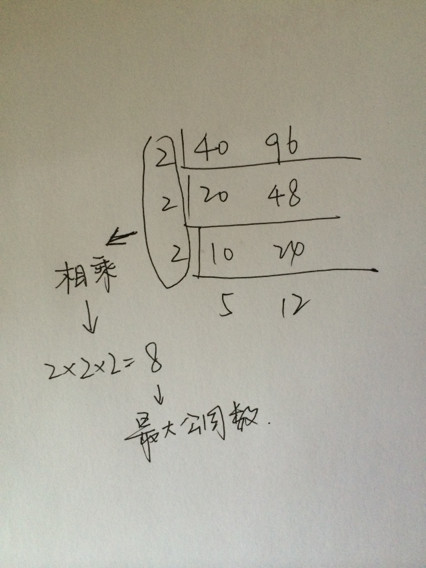 2 40 96
2 20 48
2 10 24
5 12
相乘
2×2×2=8
最大公因数.